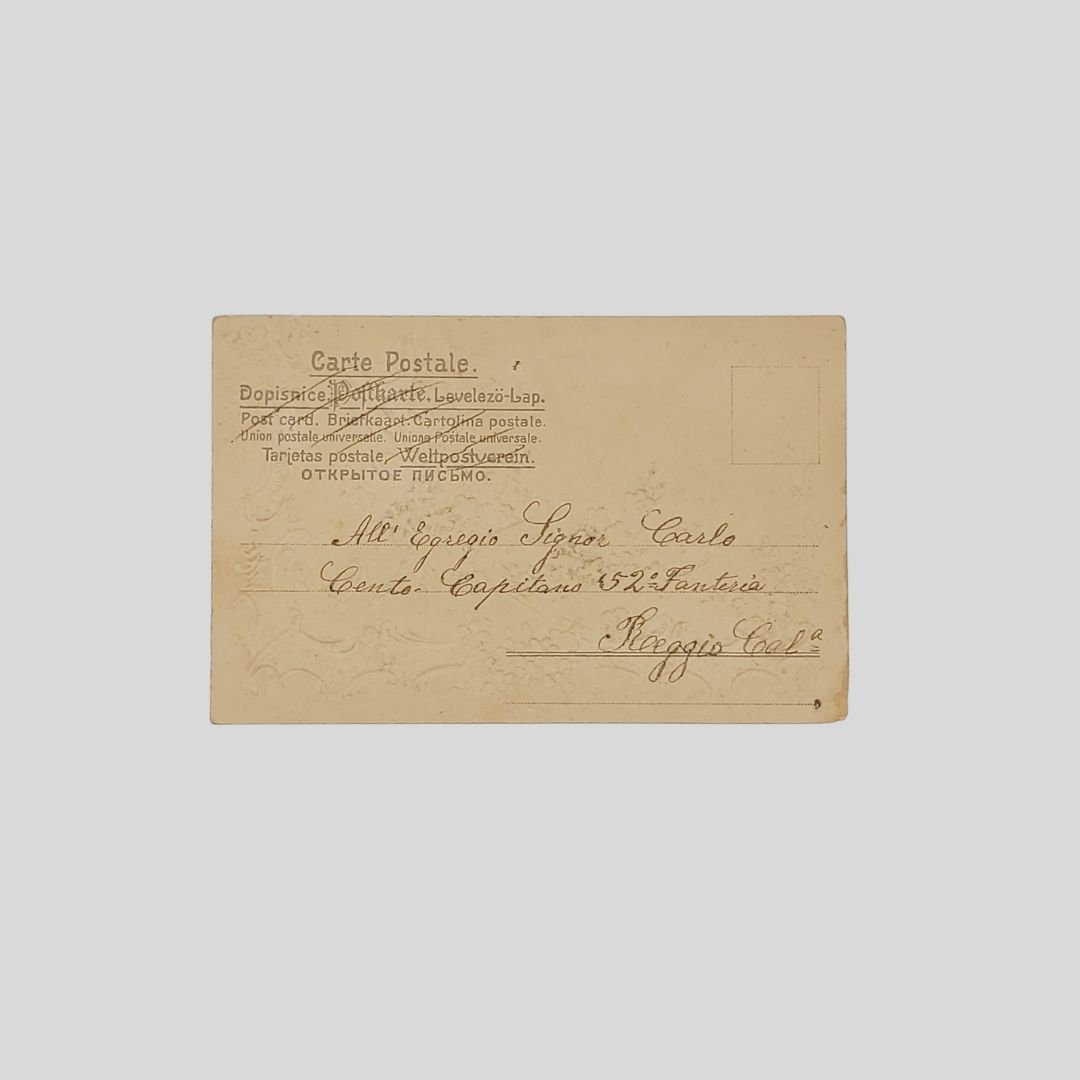 Carte Postale.
Dopisnice. Postkarte. Levelezö-Lap.
Post card. Briefkaart. Cartolina postale.
Union postale universelle. Unione Postale universale.
Tarjetas postale, Weltpostverein.
ОТКРЫТОЕ ПИСЬМО.
All' Egregio Signor Carlo
Cento- Capitano 52º Fanteria
Reggio Calª